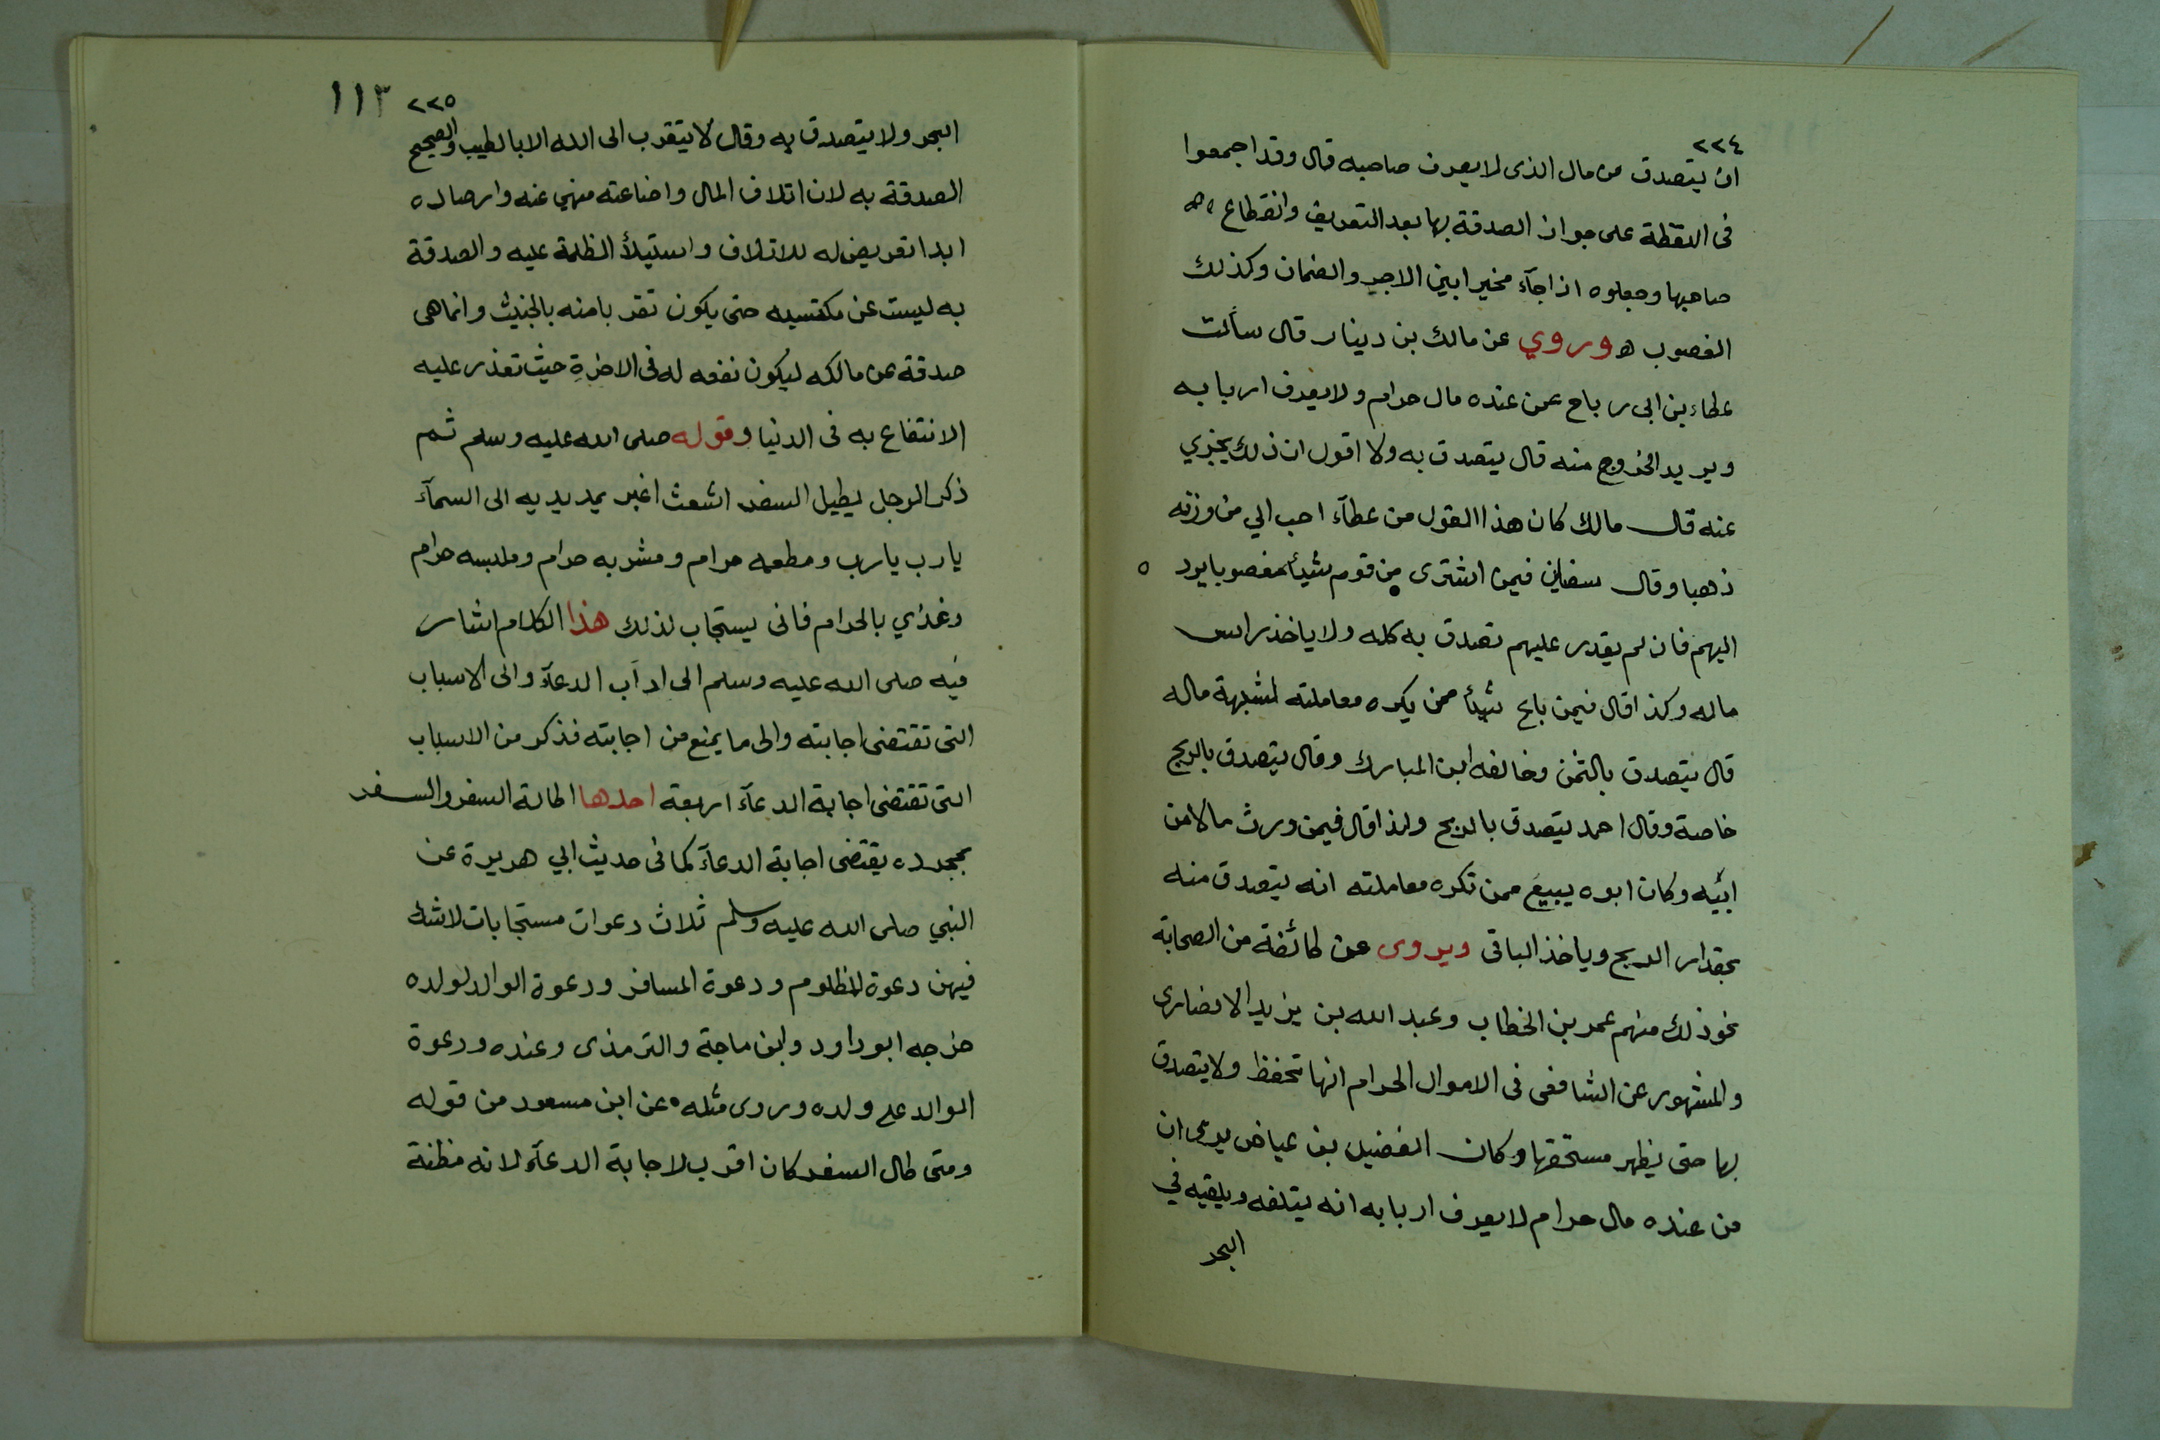 ٢٢٤
ان يتصدق من مال الذى لا يعرف صاحبه قال وقد اجمعوا
فى اللقطة على جواز الصدقة بها بعد التعريف وانقطاع
صاحبها وجعلوه اذا جآء مخيرا بين الاجر والضمان وكذلك
الغصوب ه وروي عن مالك بن دينار قال سألت
عطاء بن ابى رباح عمن عنده مال حرام ولا يعرف اربابه
ويريد الخروج منه قال يتصدق به ولا اقول ان ذلك يجزي
عنه قال مالك كان هذا القول من عطآء احب الي من وزنه
ذهبا وقال سفاين فيمن اشترى من قوم شيئا مغصوبا يرد ٥
اليهم فان لم يقدر عليهم تصدق به كله ولا ياخذ راس
ماله وكذا قال فيمن باع شيئا ممن يكره معاملته لشبهة ماله
قال يتصدق بالثمن وخالفه ابن المبارك وقال يتصدق بالربح
خاصة وقال احمد يتصدق بالربح ولذا قال فيمن ورث مالا من
ابيه وكان ابوه يبيع ممن تكره معاملته انه يتصدق منه
بمقدار الربح وياخذ الباقى ويروى عن طائفة من الصحابة
نحو ذلك منهم عمر بن الخطاب وعبد الله بن يزيد الانصارى
والمشهور عن الشافعى فى الاموال الحرام انها تحفظ ولا يتصدق
بها حتى يظهر مستحقها وكان الفضيل بن عياض يرى ان
من عنده مال حرام لا يعرف اربابه انه يتلفه ويلقيه في
البحر
٢٢٥ ١١٣
البحر ولا يتصدق به وقال لا يتقرب الى الله الا بالطيب والصحيح
الصدقة به لان اتلاف المال واضاعته منهي عنه وارصاده
ابدا تعريض له للاتلاف واستيلأ الظلمة عليه والصدقة
به ليست عن مكتسبه حتى يكون تقربا منه بالخبيث وانما هى
صدقة عن مالكه ليكون نفعه له فى الاخرة حيث تعذر عليه
الانتفاع به فى الدنيا وقوله صلى الله عليه وسلم ثم
ذكر الرجل يطيل السفر اشعث اغبر يمد يديه الى السمآء
يارب يارب ومطعمه حرام ومشربه حرام وملبسه حرام
وغذي بالحرام فانى يستجاب لذلك هذا الكلام اشار
فيه صلى الله عليه وسلم الى اداب الدعآء والى الاسباب
التى تقتضى اجابته والى ما يمنع من اجابته فذكر من الاسباب
التى تقتضى اجابة الدعآء اربعة احدها اطالة السفر والسفر
بمجرده يقتضى اجابة الدعآء كما فى حديث ابي هريرة عن
النبي صلى الله عليه وسلم ثلاث دعوات مستجابات لا شك
فيهن دعوة المظلوم ودعوة المسافر ودعوة الوالد لولده
خرجه ابو داود وابن ماجة والترمذى وعنده ودعوة
الوالد على ولده وروى مثله عن ابن مسعود من قوله
ومتى طال السفر كان اقرب لاجابة الدعآء لانه مظنة